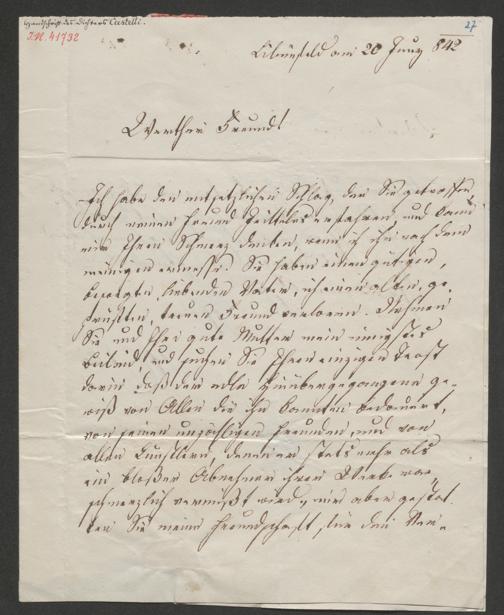 Handschrift des Dichters Castelli.
I.N. 41732
27
Lilienfeld am 20 Juny 842
Werther Freund!
Ich habe den entsetzlichen Schlag, der Sie getroffen
durch meinen Freund erfahren, und kann
mir Ihren Schmerz denken, wenn ich ihn nach dem
meinigen ermesse. Sie haben einen gütigen,
besorgten, liebenden Vater, ich einen alten, ge-
prüften, treuen Freund verloren. Nehmen
Sie und Ihre gute Mutter mein innigstes
Beileid und suchen Sie Ihren einzigen Trost
darin daß der edle Hinübergegangene ge-
wiß von Allen die ihn kannten bedauert,
von seinen unzähligen Freunden, und von
allen Künstlern, denen er stets mehr als
ein bloßer Abnehmer ihrer Werke war
schmerzlich vermißt wird, mir aber gestat-
ten Sie meine Freundschaft, die den